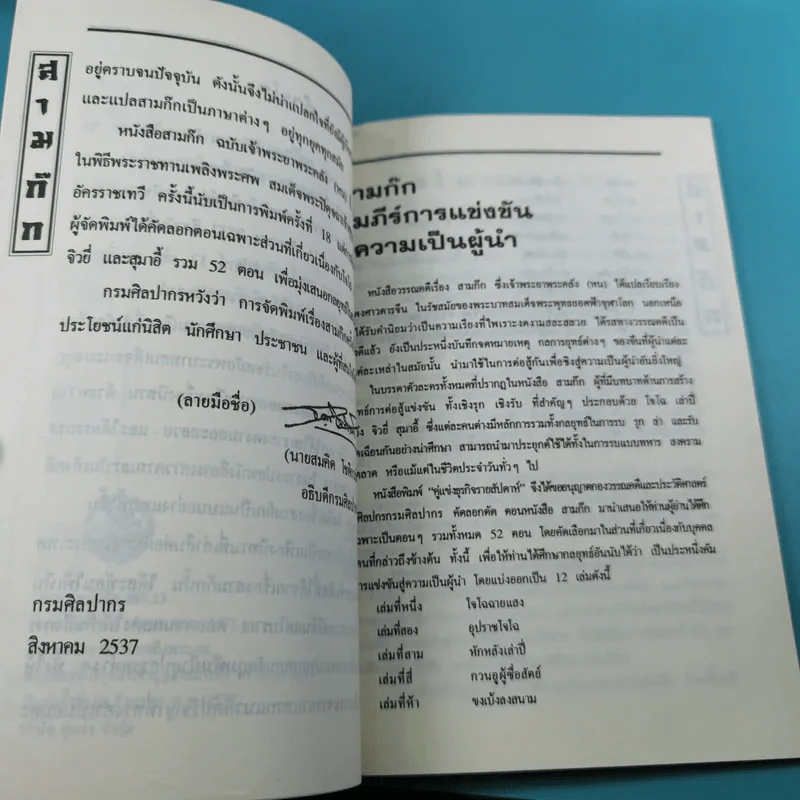 สามก๊ก
อยู่ตราบจนปัจจุบัน ดังนั้นจึงไม่น่าแปลกใจที่ยังมีผู้
และแปลสามก๊กเป็นภาษาต่างๆ อยู่ทุกยุคทุกสมัย
หนังสือสามก๊ก ฉบับเจ้าพระยาพระคลัง (หน)
ในพิธีพระราชทานเพลิงพระศพ สมเด็จพระปิตุจฉาเจ้า
อัครราชเทวี ครั้งนี้นับเป็นการพิมพ์ครั้งที่ 18
ผู้จัดพิมพ์ได้คัดลอกตอนเฉพาะส่วนที่เกี่ยวเนื่องกับโจโฉ
จิวยี่ และสุมาอี้ รวม 52 ตอน เพื่อมุ่งเสนอกลยุทธ์
กรมศิลปากรหวังว่า การจัดพิมพ์เรื่องสามก๊ก
ประโยชน์แก่นิสิต นักศึกษา ประชาชน และผู้ที่
(ลายมือชื่อ)
(นายสมคิด
อธิบดีกรมศิลปากร
กรมศิลปากร
สิงหาคม 2537
ามก๊ก
มภีร์การแข่งขัน
ความเป็นผู้นำ
หนังสือวรรณคดีเรื่อง สามก๊ก ซึ่งเจ้าพระยาพระคลัง (หน) ได้แปลเรียบเรียง
งศาวดารจีน ในรัชสมัยของพระบาทสมเด็จพระพุทธยอดฟ้าจุฬาโลก นอกเหนือ
ได้รับคำนิยมว่าเป็นความเรียงที่ไพเราะงดงามสละสลวย ได้รสทางวรรณคดีเป็น
ดีแล้ว ยังเป็นประหนึ่งบันทึกจดหมายเหตุ กลการยุทธ์ต่างๆ ของจีนที่ผู้นำแต่ละ
ต่ละเหล่าในสมัยนั้น นำมาใช้ในการต่อสู้กันเพื่อชิงสู่ความเป็นผู้นำอันยิ่งใหญ่
ในบรรดาตัวละครทั้งหมดที่ปรากฏในหนังสือ สามก๊ก ผู้ที่มีบทบาทด้านการสร้าง
ทธ์การต่อสู้แข่งขัน ทั้งเชิงรุก เชิงรับ ที่สำคัญๆ ประกอบด้วย โจโฉ เล่าปี่
ง จิวยี่ สุมาอี้ ซึ่งแต่ละคนต่างมีหลักการรวมทั้งกลยุทธ์ในการรบ รุก ล่า และรับ
ฉือนกันอย่างน่าศึกษา สามารถนำมาประยุกต์ใช้ได้ทั้งในการรบแบบทหาร สงคราม
ตลาด หรือแม้แต่ในชีวิตประจำวันทั่วๆ ไป
หนังสือพิมพ์ "คู่แข่งธุรกิจรายสัปดาห์" จึงได้ขออนุญาตกองวรรณคดีและประวัติศาสตร์
ศิลปกรกรมศิลปากร คัดลอกตัด ตอนหนังสือ สามก๊ก มานำเสนอให้ท่านผู้อ่านได้ศึก
ฉพาะเป็นตอนๆ รวมทั้งหมด 52 ตอน โดยคัดเลือกมาในส่วนที่เกี่ยวเนื่องกับบุคคล
นที่กล่าวถึงข้างต้น ทั้งนี้ เพื่อให้ท่านได้ศึกษากลยุทธ์อันนับได้ว่า เป็นประหนึ่งคัม
การแข่งขันสู่ความเป็นผู้นำ โดยแบ่งออกเป็น 12 เล่มดังนี้
เล่มที่หนึ่ง โจโฉฉายแสง
เล่มที่สอง อุปราชโจโฉ
เล่มที่สาม หักหลังเล่าปี่
เล่มที่สี่ กวนอูผู้ซื่อสัตย์
เล่มที่ห้า ขงเบ้งลงสนาม